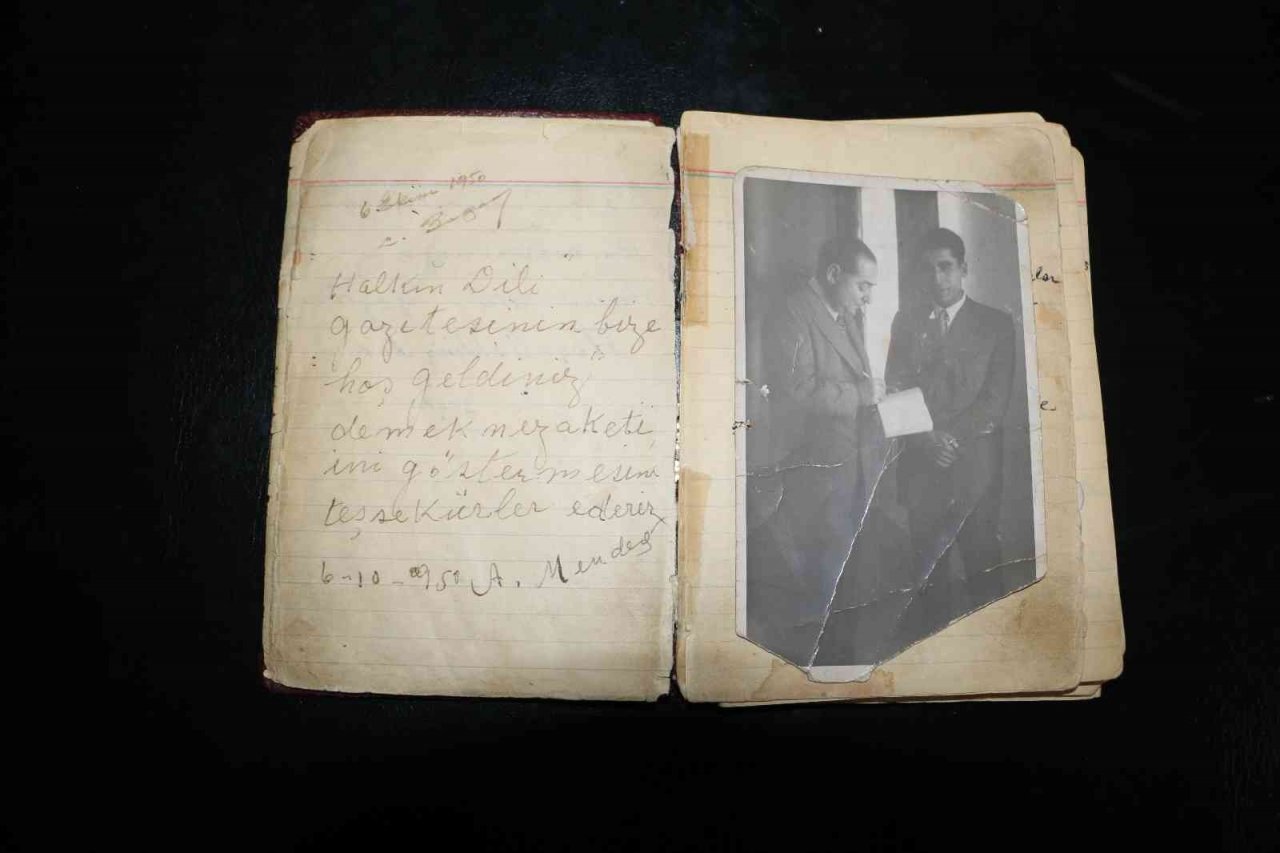 6 Ekim 1950
Halkın Dili
gazetesinin bize
"hoş geldiniz"
demek nezaketi
ini göstermesine
teşsekürler ederiz
6-10-950 A. Mendes
ler
e